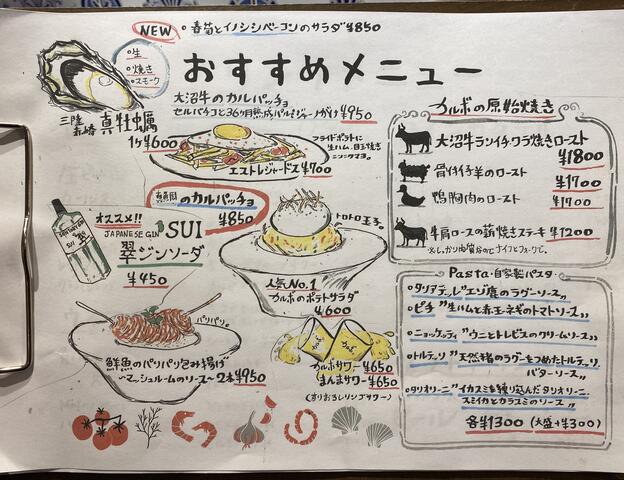 NEW ・春菊とイノシシベーコンのサラダ ¥850
おすすめメニュー
・生
・焼き
・スモーク
三陸
赤崎 真牡蠣
1ヶ¥600
大沼牛のカルパッチョ
セルバチコと36ヶ月熟成パルミジャーノがけ ¥950
フライドポテトに
生ハム、目玉焼き
ニンニクマヨ。
エストレジャードス ¥700
のカルパッチョ
¥850
オススメ!!
JAPANESE GIN SUI
翠ジンソーダ
¥450
トロトロ玉子。
人気No.1
カルボのポテトサラダ
¥600
パリパリ。
鮮魚のパリパリ包み揚げ
〜マッシュルームのソース〜 2本¥950
カルボサワー ¥650
まんまサワー ¥650
(すりおろしリンゴサワー)
カルボの原始焼き
大沼牛ランイチ、ワラ焼きロースト
¥1800
骨付仔羊のロースト
¥1700
鴨胸肉のロースト
¥1700
牛肩ロースの薪焼きステーキ ¥1200
※しっかり肉質なのでナイフとフォークで。
Pasta・自家製パスタ
・タリアテッレ"エゾ鹿のラグーソース〟
・ピチ"生ハムと赤玉ネギのトマトソース〟
・ニョッケッティ"ウニとトレビスのクリームソース〟
・トルテッリ"天然猪のラグーをつめたトルテッリ
バターソース〟
・タリオリーニ"イカスミを練り込んだタリオリーニ
スミイカとカラスミのソース〟
各¥1300(大盛+¥300)